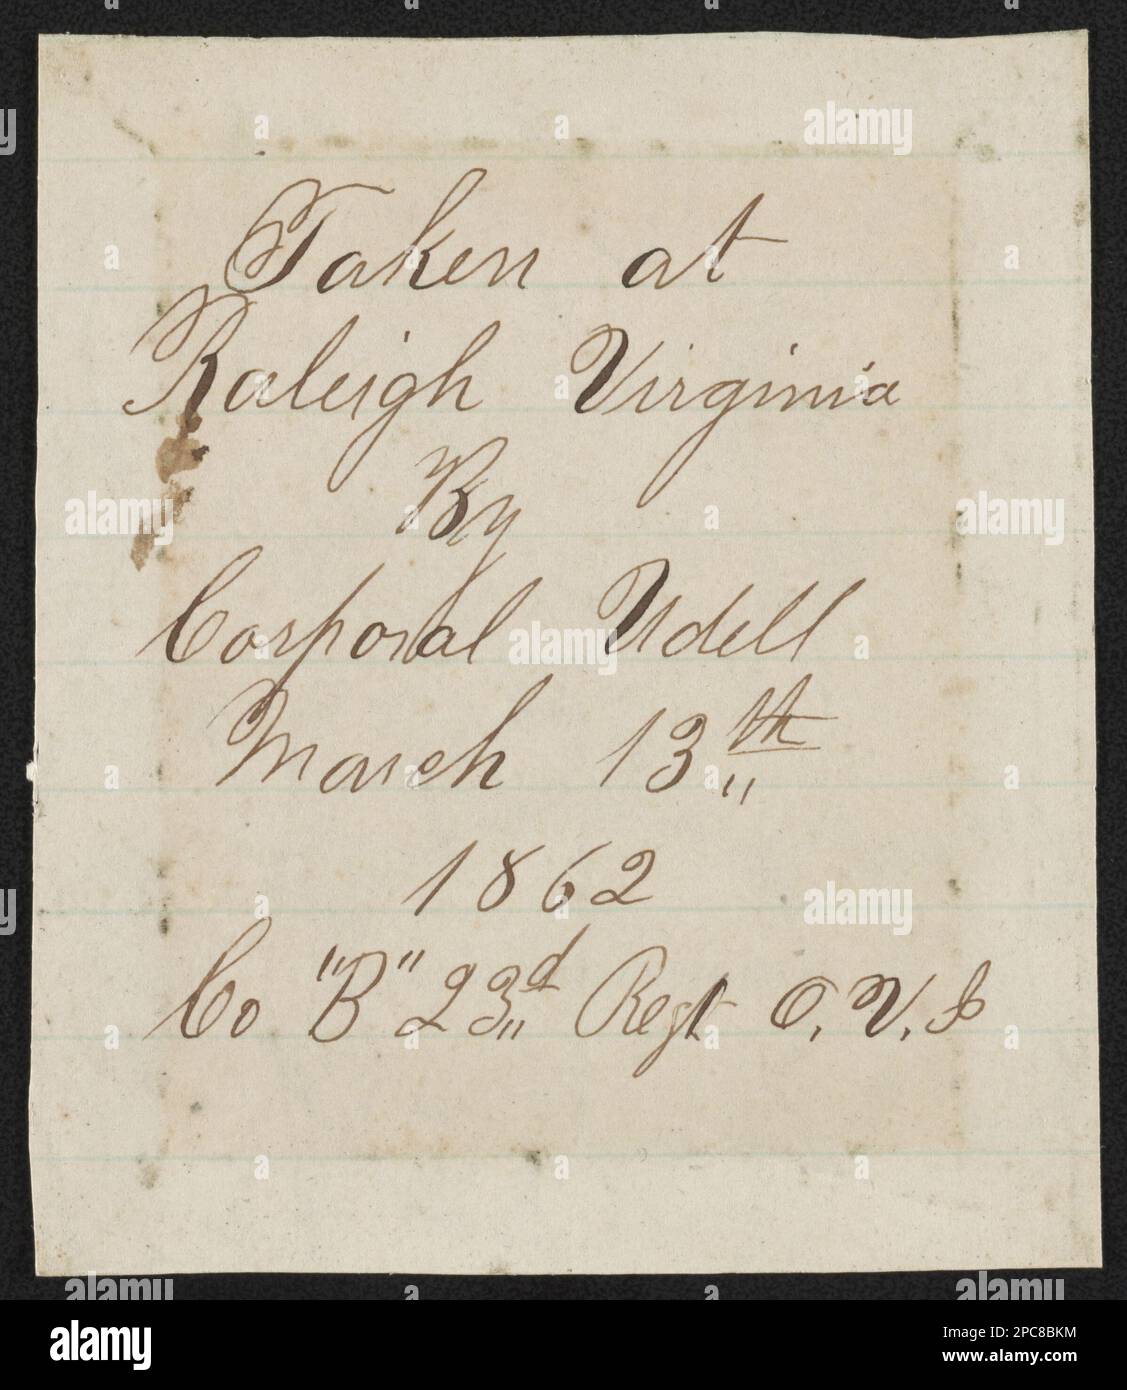 Taken at
Raleigh Virginia
By
Corporal Udell
March 13th
1862
Co "B" 23d Regt O.V.I
alamy
Image ID: 2PC8BKM
www.alamy.com